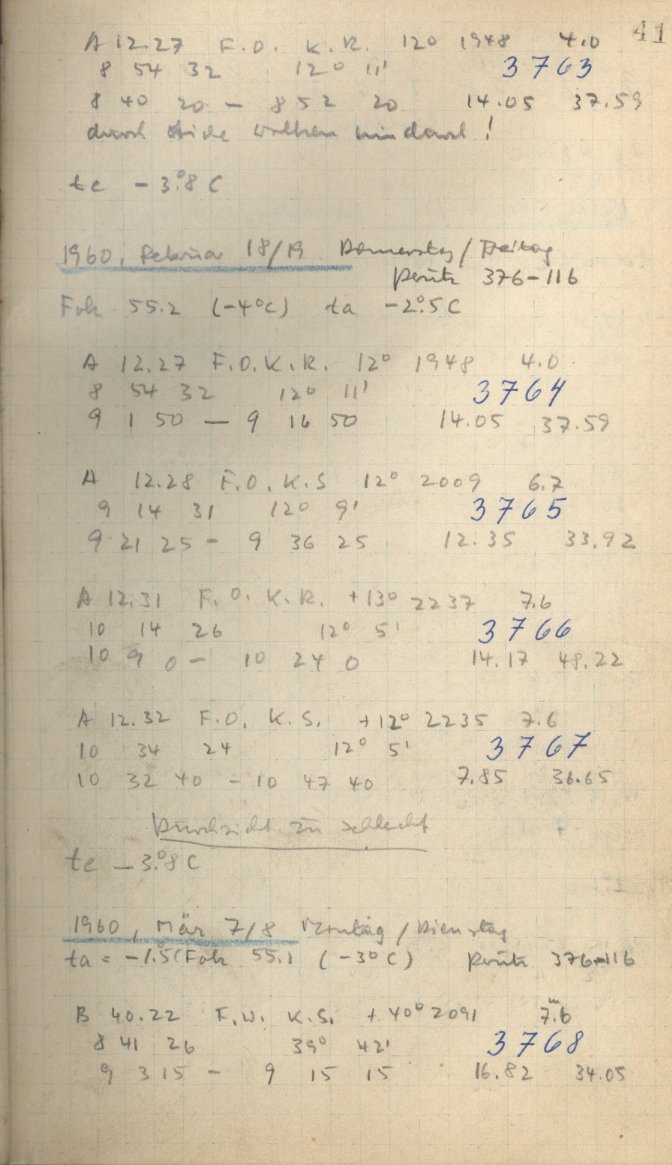 41
A 12.27 F.O. K.R. 12° 1948 4.0
8 54 32 12° 11' 3763
8 40 20 – 8 52 20 14.05 37.59
durch dicke Wolken hindurch!
te –3°.8 C
1960, Februar 18/19 Donnerstag / Freitag
Perutz 376–116
Fok 55.2 (–4°C) ta –2°.5 C
A 12.27 F.O.K.R. 12° 1948 4.0
8 54 32 12° 11' 3764
9 1 50 – 9 16 50 14.05 37.59
A 12.28 F.O. K.S 12° 2009 6.7
9 14 31 12° 9' 3765
9 21 25 – 9 36 25 12.35 33.92
A 12.31 F.O. K.R. +13° 2237 7.6
10 14 26 12° 5' 3766
10 9 0 – 10 24 0 14.17 48.22
A 12.32 F.O. K.S. +12° 2235 7.6
10 34 24 12° 5' 3767
10 32 40 – 10 47 40 7.85 36.65
Durchsicht zu schlecht
te –3°.8 C
1960, März 7/8 Montag / Dienstag
ta = –1.5 (Fok 55.1 (–3°C) Perutz 376–116
B 40.22 F.W. K.S. +40° 2091 7.6
8 41 26 39° 42' 3768
9 3 15 – 9 15 15 16.82 34.05